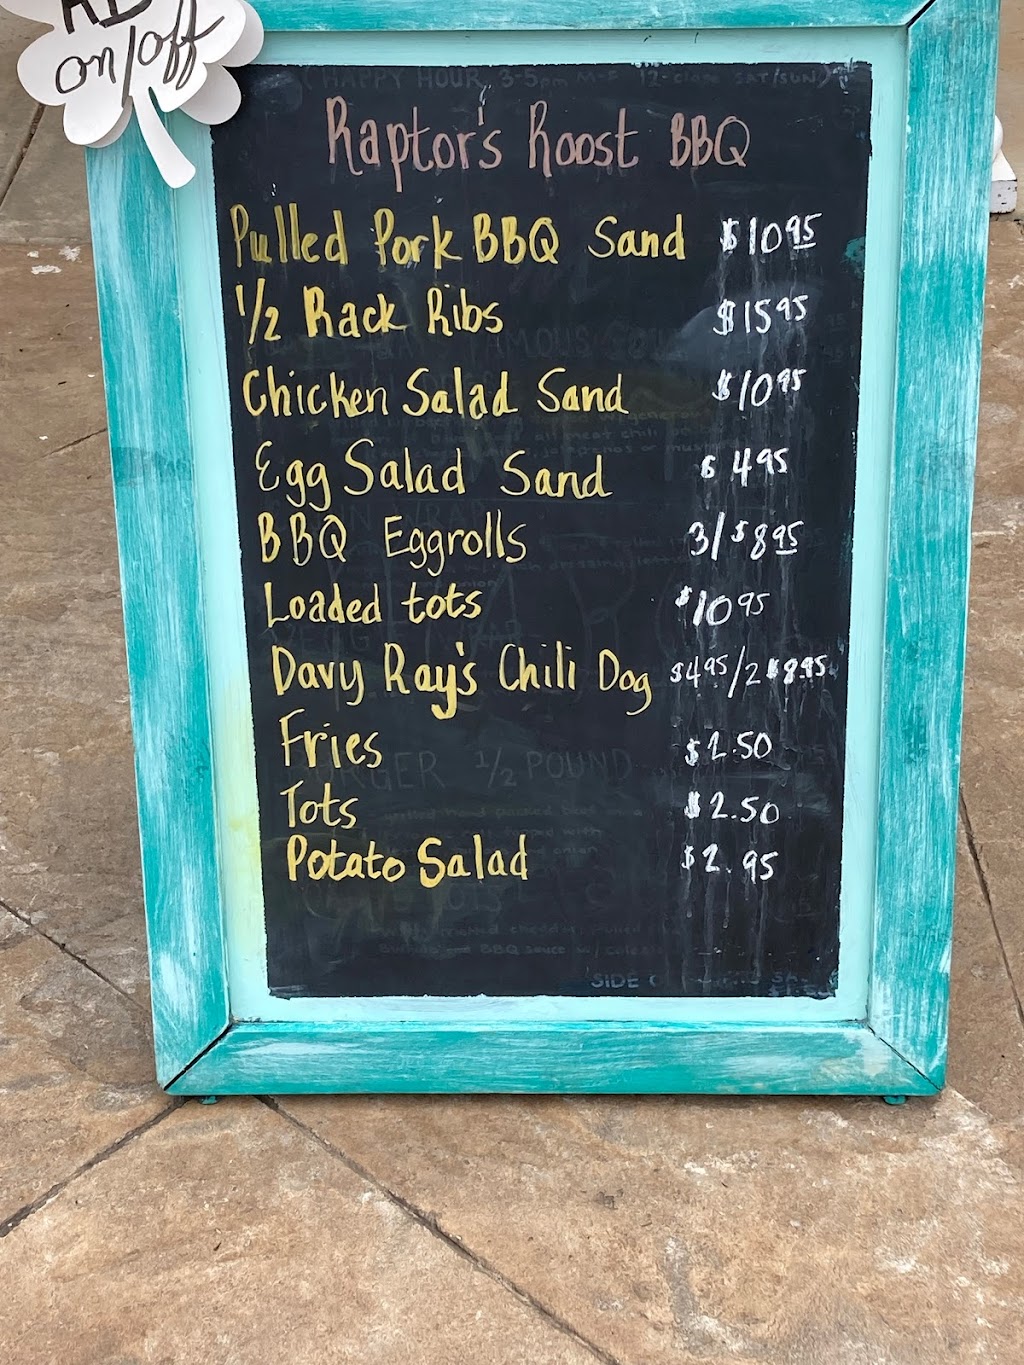 on/off
(HAPPY HOUR 3-5pm M-F
Raptor's Roost BBQ
Pulled Pork BBQ Sand $10.95
1/2 Rack Ribs $15.95
Chicken Salad Sand $10.95
Egg Salad Sand $4.95
BBQ Eggrolls 3/$8.95
Loaded tots $10.95
Davy Ray's Chili Dog $4.95/2 $8.95
Fries $2.50
BURGER 1/2 POUND
Tots $2.50
Potato Salad $2.95
SIDE